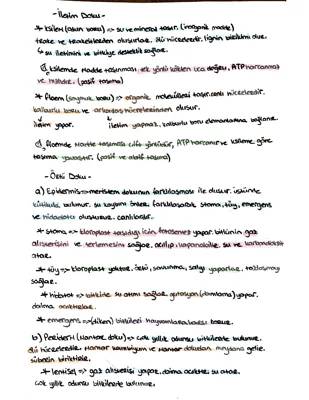 - İletim Doku -
* ksilem (odun boru) => su ve mineral taşır. (inorganik madde)
trake ve trakeitlerden oluşurlar. ölü hücrelerdir. lignin birikimi olur.
↳ su iletimini ve bitkiye desteklik sağlar.
ksilemde madde taşınması tek yönlü kökten uca doğru, ATP harcanmaz
ve hızlıdır. (pasif taşıma)
* floem (soymuk boru) => organik molekülleri taşır. canlı hücrelerdir.
kalburlu boru ve arkadaş hücrelerinden oluşur.
iletim yapar. iletim yapmaz, kalburlu boru elemanlarına bağlanır.
floemde madde taşıması çift yönlüdür, ATP harcanır ve ksileme göre
taşıma yavaştır. (pasif ve aktif taşıma)
- Örtü Doku -
a) Epidermis => meristem dokunun farklılaşması ile oluşur. üstünde
kütikula bulunur. su kaybını önler. farklılaşarak stoma, tüy, emergens
ve hidatotu oluşturur. canlılardır.
* stoma => kloroplast taşıdığı için fotosentez yapar. bitkinin gaz
alışverişini ve terlemesini sağlar. açılıp, kapanabilir. su ve karbondioksit
atar.
* tüy => kloroplast yoktur. örtü, savunma, salgı yaparlar,
sağlar.
* hidatot => bitkide su atımı sağlar. gutasyon (damlama) yapar.
daima açıktırlar.
* emergens => (diken) bitkileri hayvanlara karşı korur.
b) Periderm (Mantar doku) => çok yıllık odunsu bitkilerde bulunur.
ölü hücrelerdir. mantar kambiyum ve mantar dokudan meydana gelir.
süberin biriktirir.
* lentisel => gaz alışverişi yapar. daima açıktır. su atar.
çok yıllık odunsu bitkilerde bulunur.